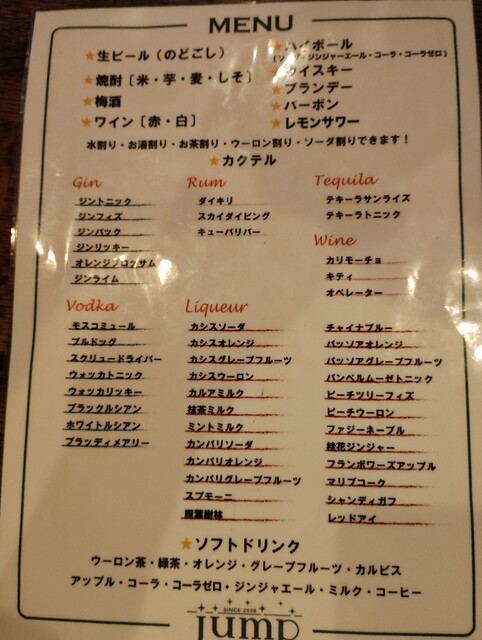 MENU
★生ビール（のどごし）
★焼酎〔米・芋・麦・しそ〕
★梅酒
★ワイン〔赤・白〕
ハイボール
ジンジャーエール・コーラ・コーラゼロ）
ウイスキー
★ブランデー
★バーボン
★レモンサワー
水割り・お湯割り・お茶割り・ウーロン割り・ソーダ割りできます！
★カクテル
Gin
ジントニック
ジンフィズ
ジンバック
ジンリッキー
オレンジブロッサム
ジンライム
Rum
ダイキリ
スカイダイビング
キューバリバー
Tequila
テキーラサンライズ
テキーラトニック
Wine
カリモーチョ
キティ
オペレーター
Vodka
モスコミュール
ブルドッグ
スクリュードライバー
ウォッカトニック
ウォッカリッキー
ブラックルシアン
ホワイトルシアン
ブラッディメアリー
Liqueur
カシスソーダ
カシスオレンジ
カシスグレープフルーツ
カシスウーロン
カルアミルク
抹茶ミルク
ミントミルク
カンパリソーダ
カンパリオレンジ
カンパリグレープフルーツ
スプモーニ
照葉樹林
チャイナブルー
パッソアオレンジ
パッソアグレープフルーツ
パンペルムーゼトニック
ピーチツリーフィズ
ピーチウーロン
ファジーネーブル
桂花ジンジャー
フランボワーズアップル
マリブコーク
シャンディガフ
レッドアイ
★ソフトドリンク
ウーロン茶・緑茶・オレンジ・グレープフルーツ・カルピス
アップル・コーラ・コーラゼロ・ジンジャエール・ミルク・コーヒー
SINCE
jump